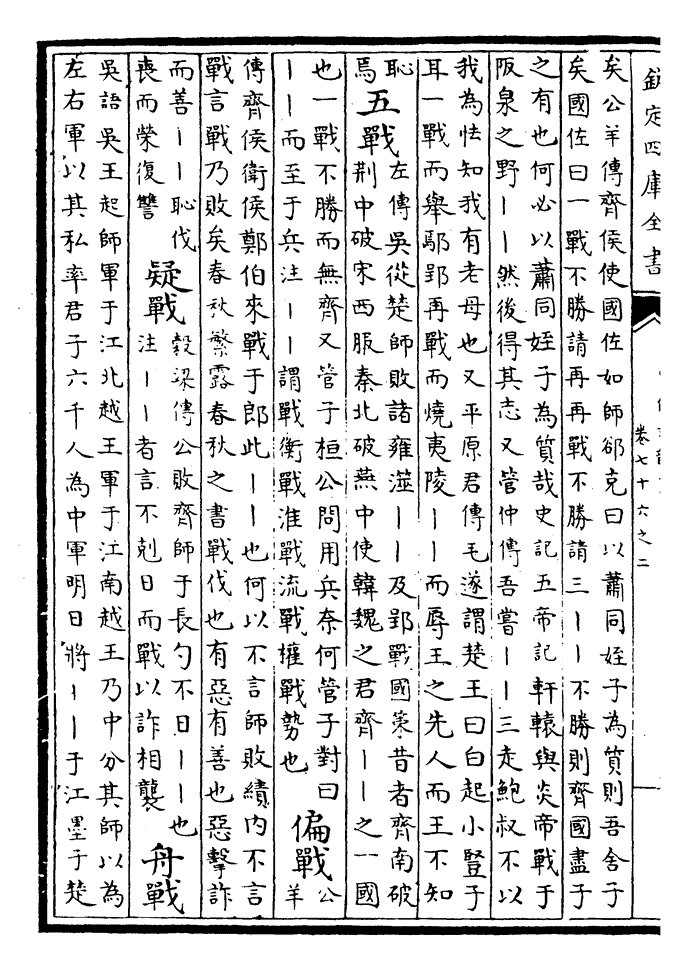 欽定四庫全書
卷七十六之二
矣公羊傳齊侯使國佐如師郤克曰以蕭同姪子為質則吾舍子
矣國佐曰一戰不勝請再再戰不勝請三丨丨不勝則齊國盡子
之有也何必以蕭同姪子為質哉史記五帝記軒轅與炎帝戰于
阪泉之野丨丨然後得其志又管仲傳吾嘗丨丨三走鮑叔不以
我為怯知我有老母也又平原君傳毛遂謂楚王曰白起小豎子
耳一戰而舉鄢郢再戰而燒夷陵丨丨而辱王之先人而王不知
恥
焉
五戰
左傳吳從楚師敗諸雍澨丨丨及郢戰國策昔者齊南破
荆中破宋西服秦北破燕中使韓魏之君齊丨丨之一國
也一戰不勝而無齊又管子桓公問用兵奈何管子對曰
丨丨而至于兵注丨丨謂戰衡戰准戰流戰權戰勢也
偏戰
公
羊
傳齊侯衛侯鄭伯來戰于郎此丨丨也何以不言師敗績内不言
戰言戰乃敗矣春秋繁露春秋之書戰伐也有惡有善也惡擊詐
而善丨丨恥伐
喪而榮復讐
疑戰
穀梁傳公敗齊師于長勺不日丨丨也
注丨丨者言不剋日而戰以詐相襲
舟戰
吳語吳王起師軍于江北越王軍于江南越王乃中分其師以為
左右軍以其私率君子六千人為中軍明日將丨丨于江墨子楚